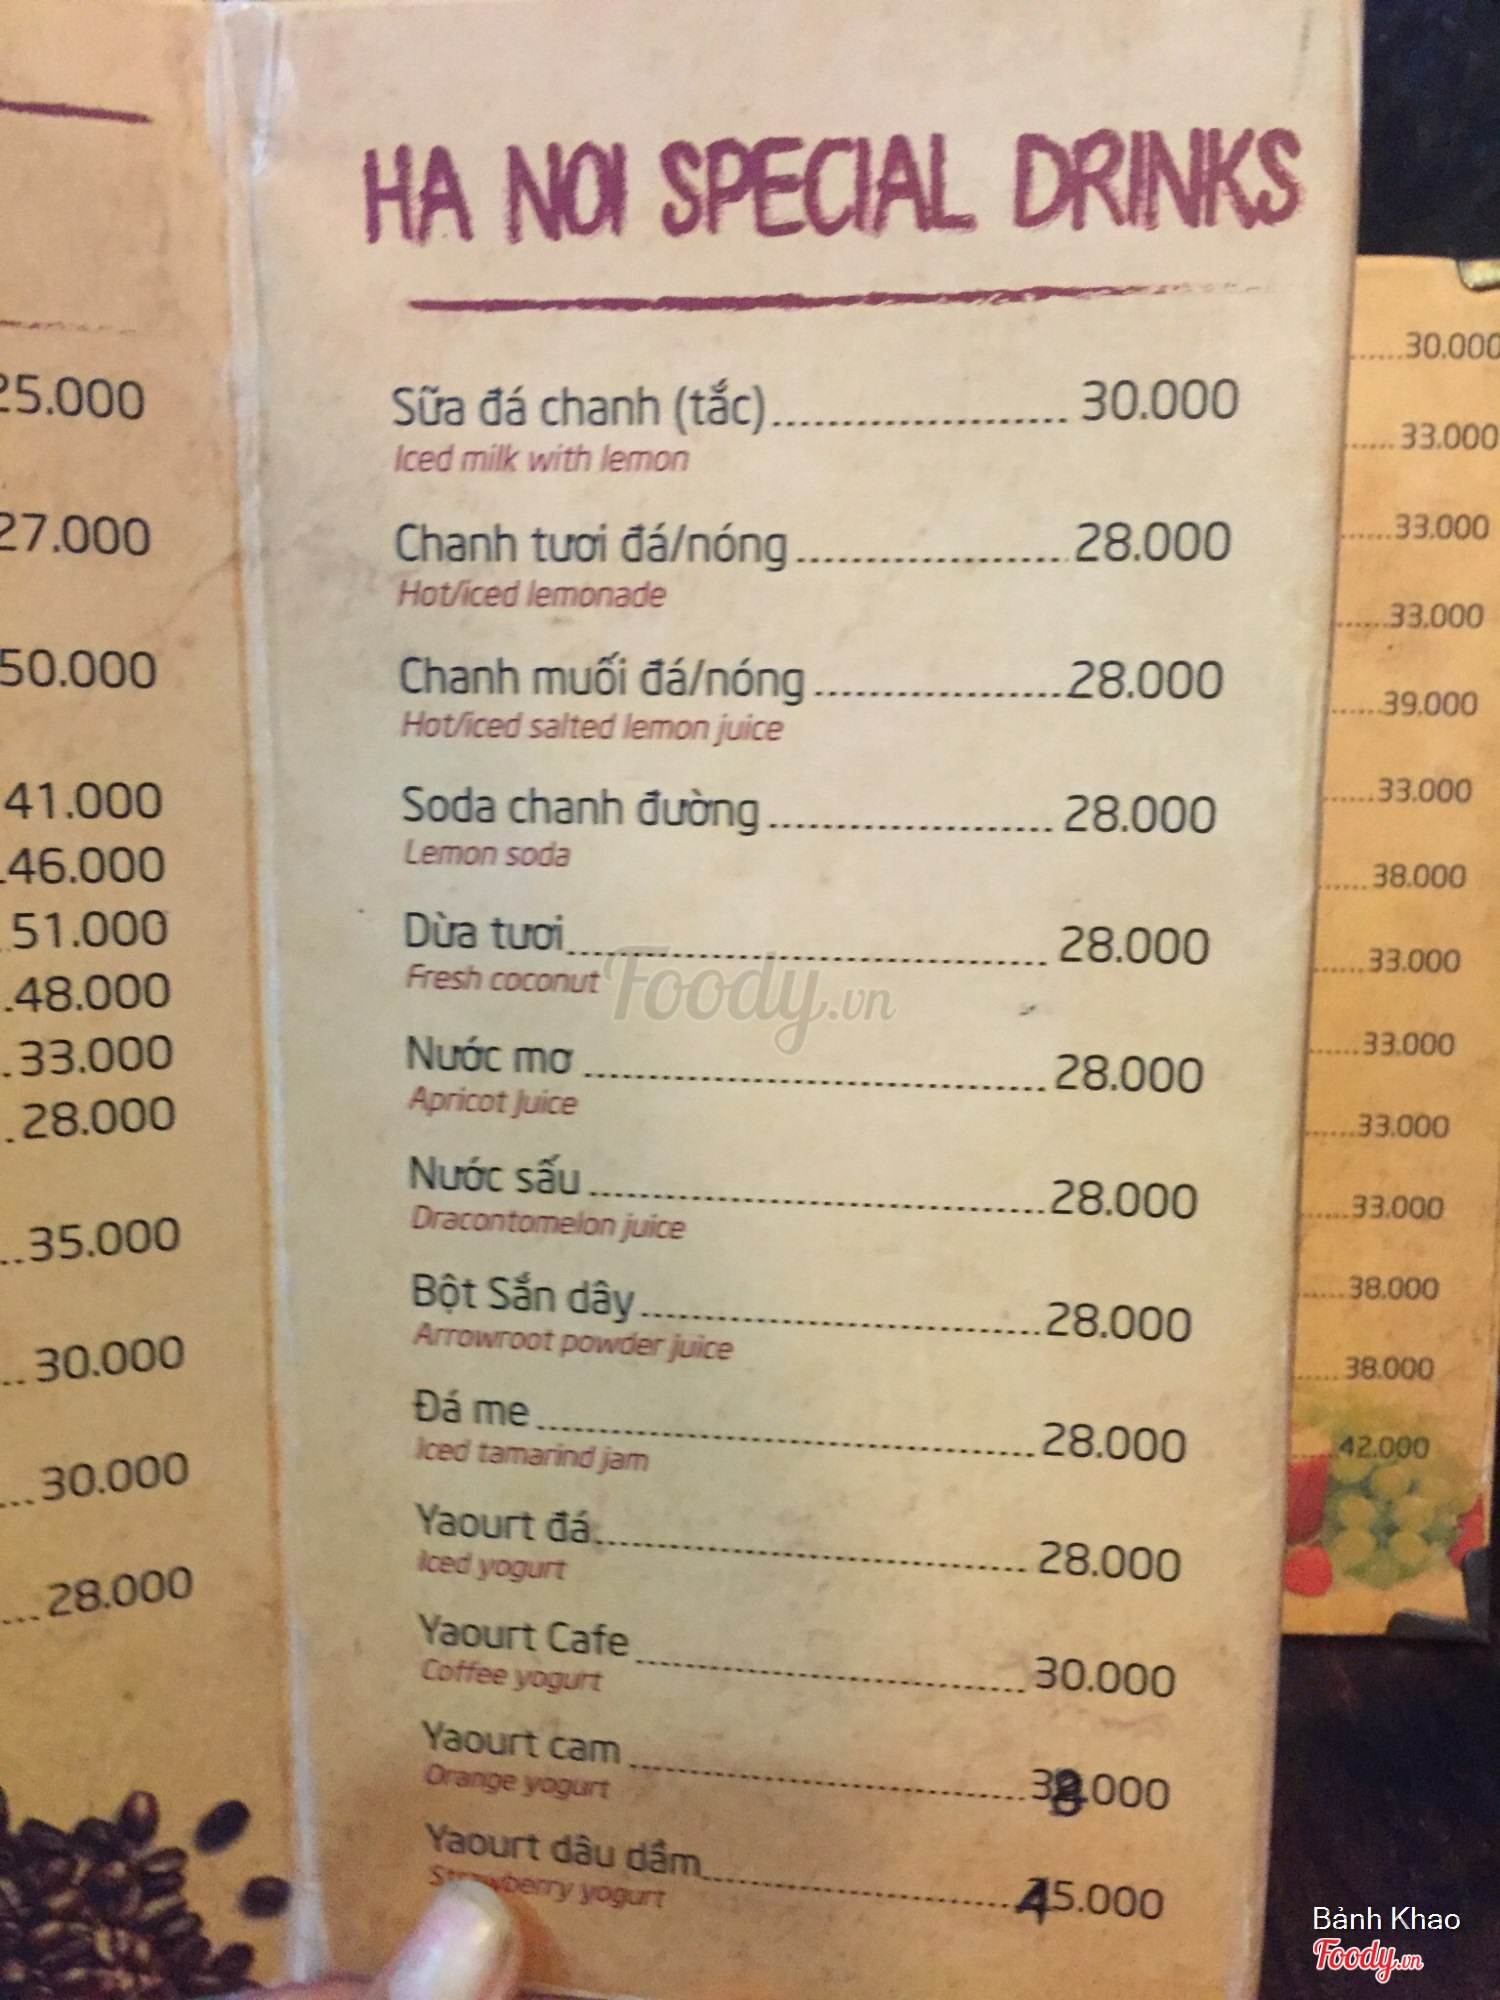 HA NOI SPECIAL DRINKS
Sữa đá chanh (tắc)..................... 30.000
Iced milk with lemon
Chanh tươi đá/nóng...................28.000
Hot/iced lemonade
Chanh muối đá/nóng..................28.000
Hot/iced salted lemon juice
Soda chanh đường..................... 28.000
Lemon soda
Dừa tươi................................... 28.000
Fresh coconut
Nước mơ...................................28.000
Apricot Juice
Nước sấu...................................28.000
Dracontomelon juice
Bột Sắn dây...............................28.000
Arrowroot powder juice
Đá me.......................................28.000
Iced tamarind jam
Yaourt đá.................................. 28.000
Iced yogurt
Yaourt Cafe............................... 30.000
Coffee yogurt
Yaourt cam................................38.000
Orange yogurt
Yaourt dâu dầm..........................45.000
Strawberry yogurt
25.000
27.000
50.000
41.000
46.000
51.000
.48.000
.33.000
.28.000
..35.000
..30.000
...30.000
...28.000
......30.000
......33.000
......33.000
......33.000
......39.000
......33.000
......38.000
......33.000
......33.000
......33.000
......33.000
......38.000
......38.000
......42.000
Foody.vn
Bảnh Khao
Foody.vn